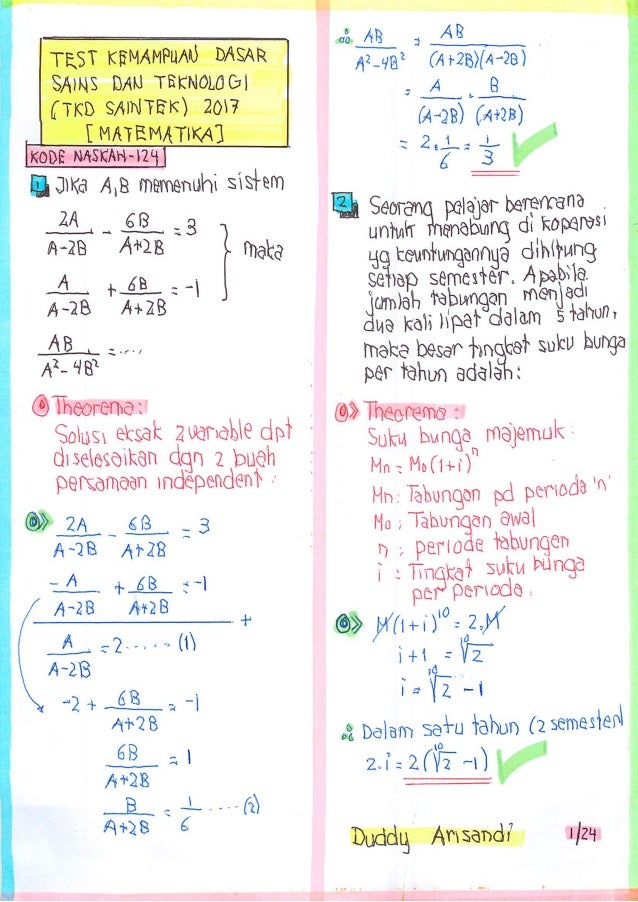 TEST KEMAMPUAN DASAR
SAINS DAN TEKNOLOGI
(TKD SAINTEK) 2017
[MATEMATIKA]
KODE NASKAH-124
1 Jika A,B memenuhi sistem
2A/(A-2B) - 6B/(A+2B) = 3
A/(A-2B) + 6B/(A+2B) = -1
} maka
AB/(A²-4B²) = ....
Theorema:
Solusi eksak 2 variable dpt
diselesaikan dgn 2 buah
persamaan independent:
2A/(A-2B) - 6B/(A+2B) = 3
-A/(A-2B) + 6B/(A+2B) = -1
+
A/(A-2B) = 2 ..... (1)
-2 + 6B/(A+2B) = -1
6B/(A+2B) = 1
B/(A+2B) = 1/6 ..... (2)
∴ AB/(A²-4B²) = AB/((A+2B)(A-2B))
= A/(A-2B) . B/(A+2B)
= 2.1/6 = 1/3
2 Seorang pelajar berencana
untuk menabung di koperasi
yg keuntungannya dihitung
setiap semester. Apabila
jumlah tabungan menjadi
dua kali lipat dalam 5 tahun,
maka besar tingkat suku bunga
per tahun adalah:
Theorema:
Suku bunga majemuk:
Mn = Mo(1+i)ⁿ
Mn: Tabungan pd perioda 'n'
Mo: Tabungan awal
n: periode tabungan
i: Tingkat suku bunga
per perioda.
M(1+i)¹⁰ = 2.M
i+1 = ¹⁰√2
i = ¹⁰√2 -1
∴ Dalam satu tahun (2 semester)
2.i = 2(¹⁰√2 -1)
Duddy Arisandi 1/24